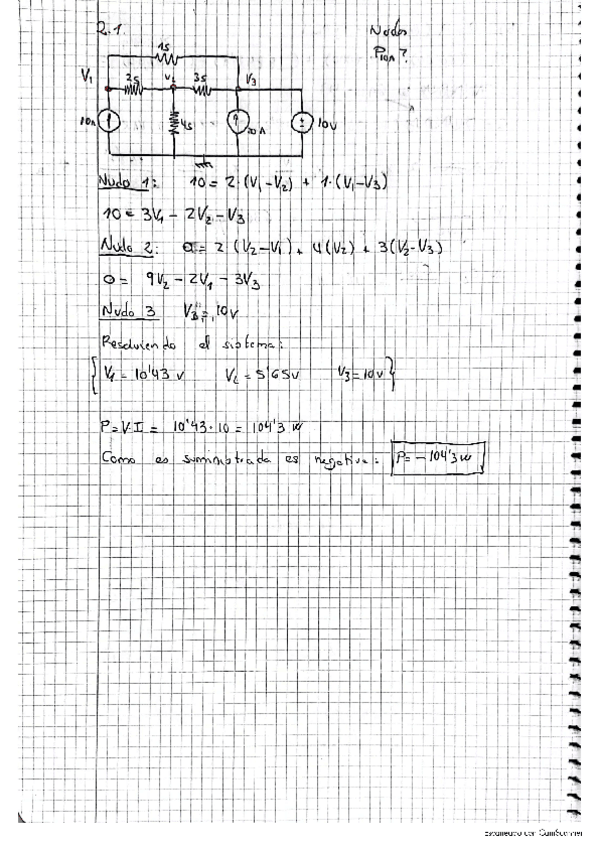 2.1.
Nudos
P10A?
1s
V1 2s V2 3s V3
10A 4s 20A 10V
Nudo 1: 10 = 2·(V1-V2) + 1·(V1-V3)
10 = 3V1 - 2V2 - V3
Nudo 2: 0 = 2(V2-V1) + 4(V2) + 3(V2-V3)
0 = 9V2 - 2V1 - 3V3
Nudo 3 V3 = 10V
Resolviendo el sistema:
{V1 = 10'43 V V2 = 5'65V V3 = 10V}
P=V·I = 10'43·10 = 104'3 W
Como es suministrada es negativa: P= -104'3 W
Escaneado con CamScanner